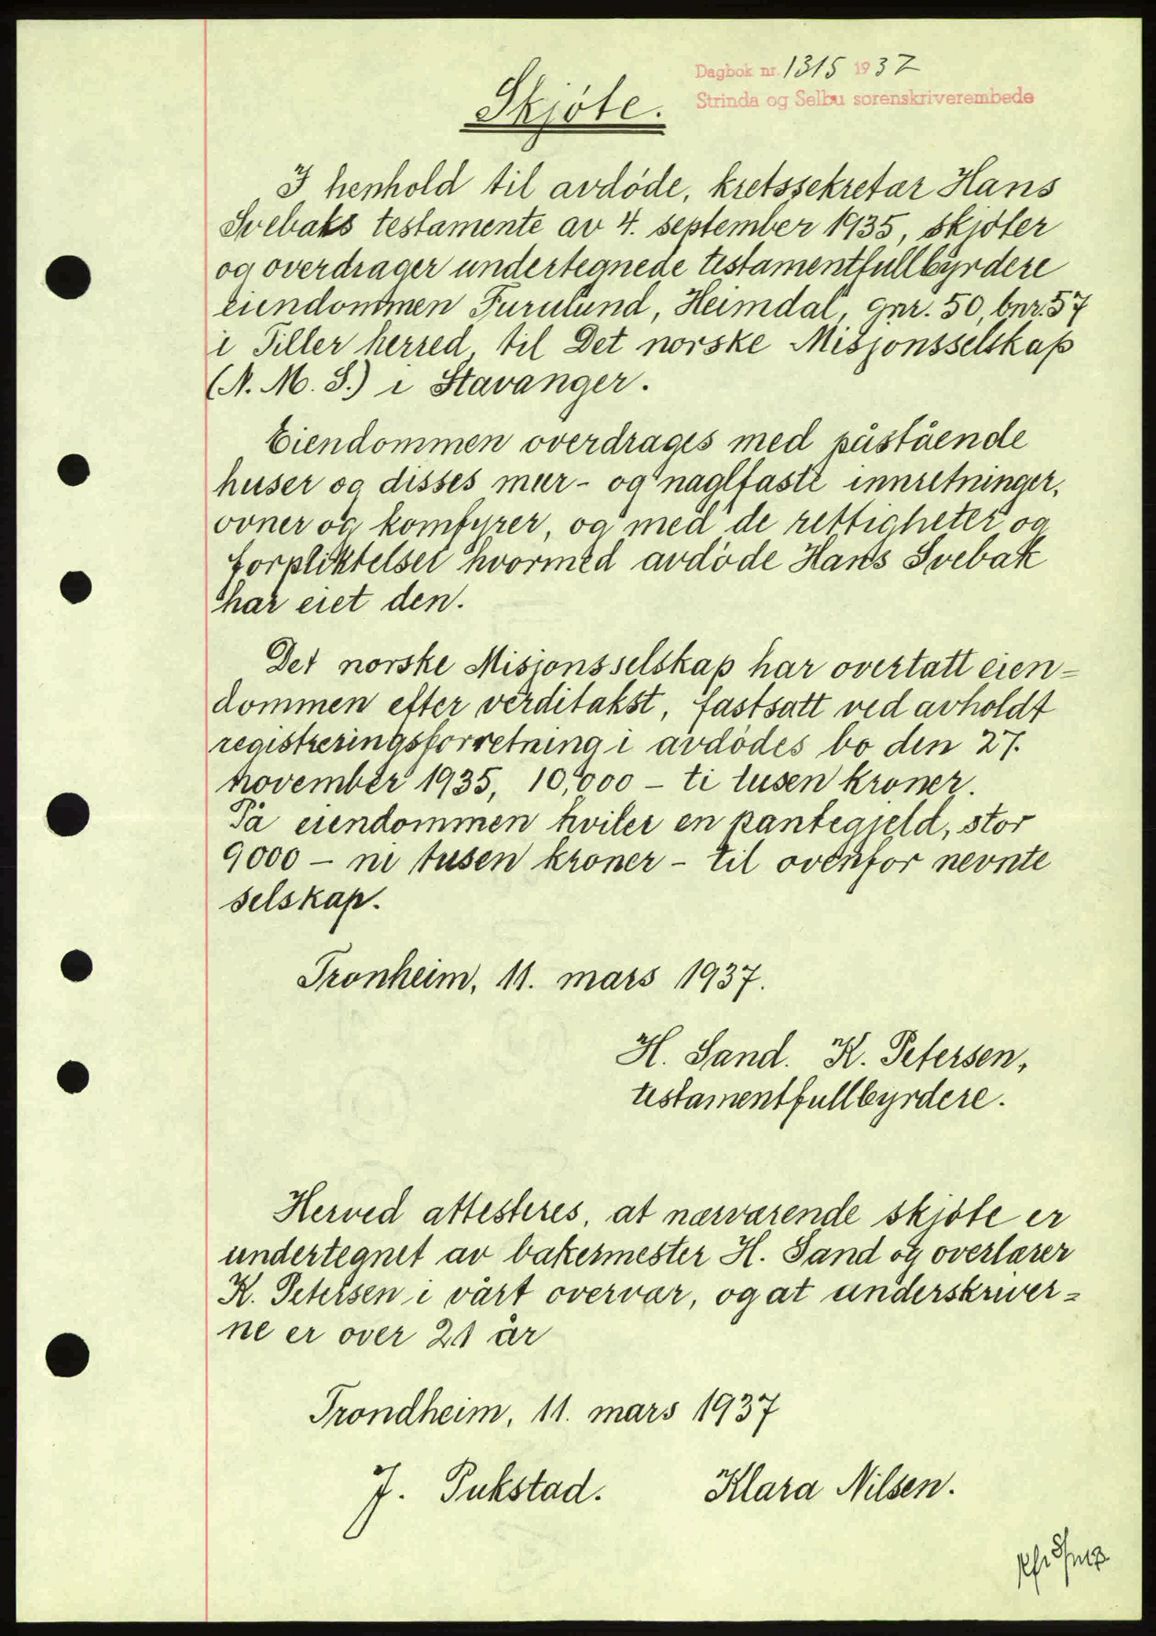 Dagbok nr. 1315 1937
Strinda og Selbu sorenskriverembede
Skjøte.
I henhold til avdøde, kretssekretær Hans
Svebaks testamente av 4. september 1935, skjøter
og overdrager undertegnede testamentfullbyrdere
eiendommen Furulund, Heimdal, gnr. 50, bnr. 57
i Tiller herred, til Det norske Misjonsselskap
(N. M. S.) i Stavanger.
Eiendommen overdrages med påstående
huser og disses mur- og naglfaste innretninger,
ovner og komfyrer, og med de rettigheter og
forpliktelser hvormed avdøde Hans Svebak
har eiet den.
Det norske Misjonsselskap har overtatt eien=
dommen efter verditakst, fastsatt ved avholdt
registreringsforretning i avdødes bo den 27.
november 1935, 10,000 - ti tusen kroner.
På eiendommen hviler en pantegjeld, stor
9000 - ni tusen kroner - til ovenfor nevnte
selskap.
Tronheim, 11. mars 1937.
H. Sand. K. Petersen,
testamentfullbyrdere.
Herved attesteres, at nærværende skjøte er
undertegnet av bakermester H. Sand og overlærer
K. Petersen i vårt overvær, og at underskriver=
ne er over 21 år
Trondheim, 11. mars 1937
J. Pukstad. Klara Nilsen.